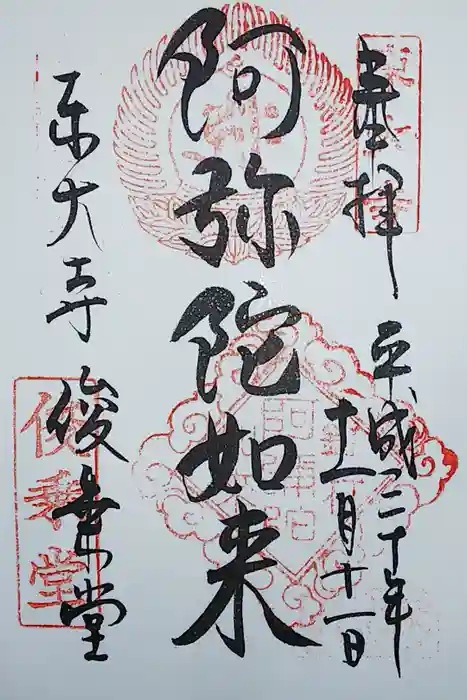 奉拝
平成三十年
十一月十一日
阿弥陀如来
東大寺
俊乗堂
俊乗堂